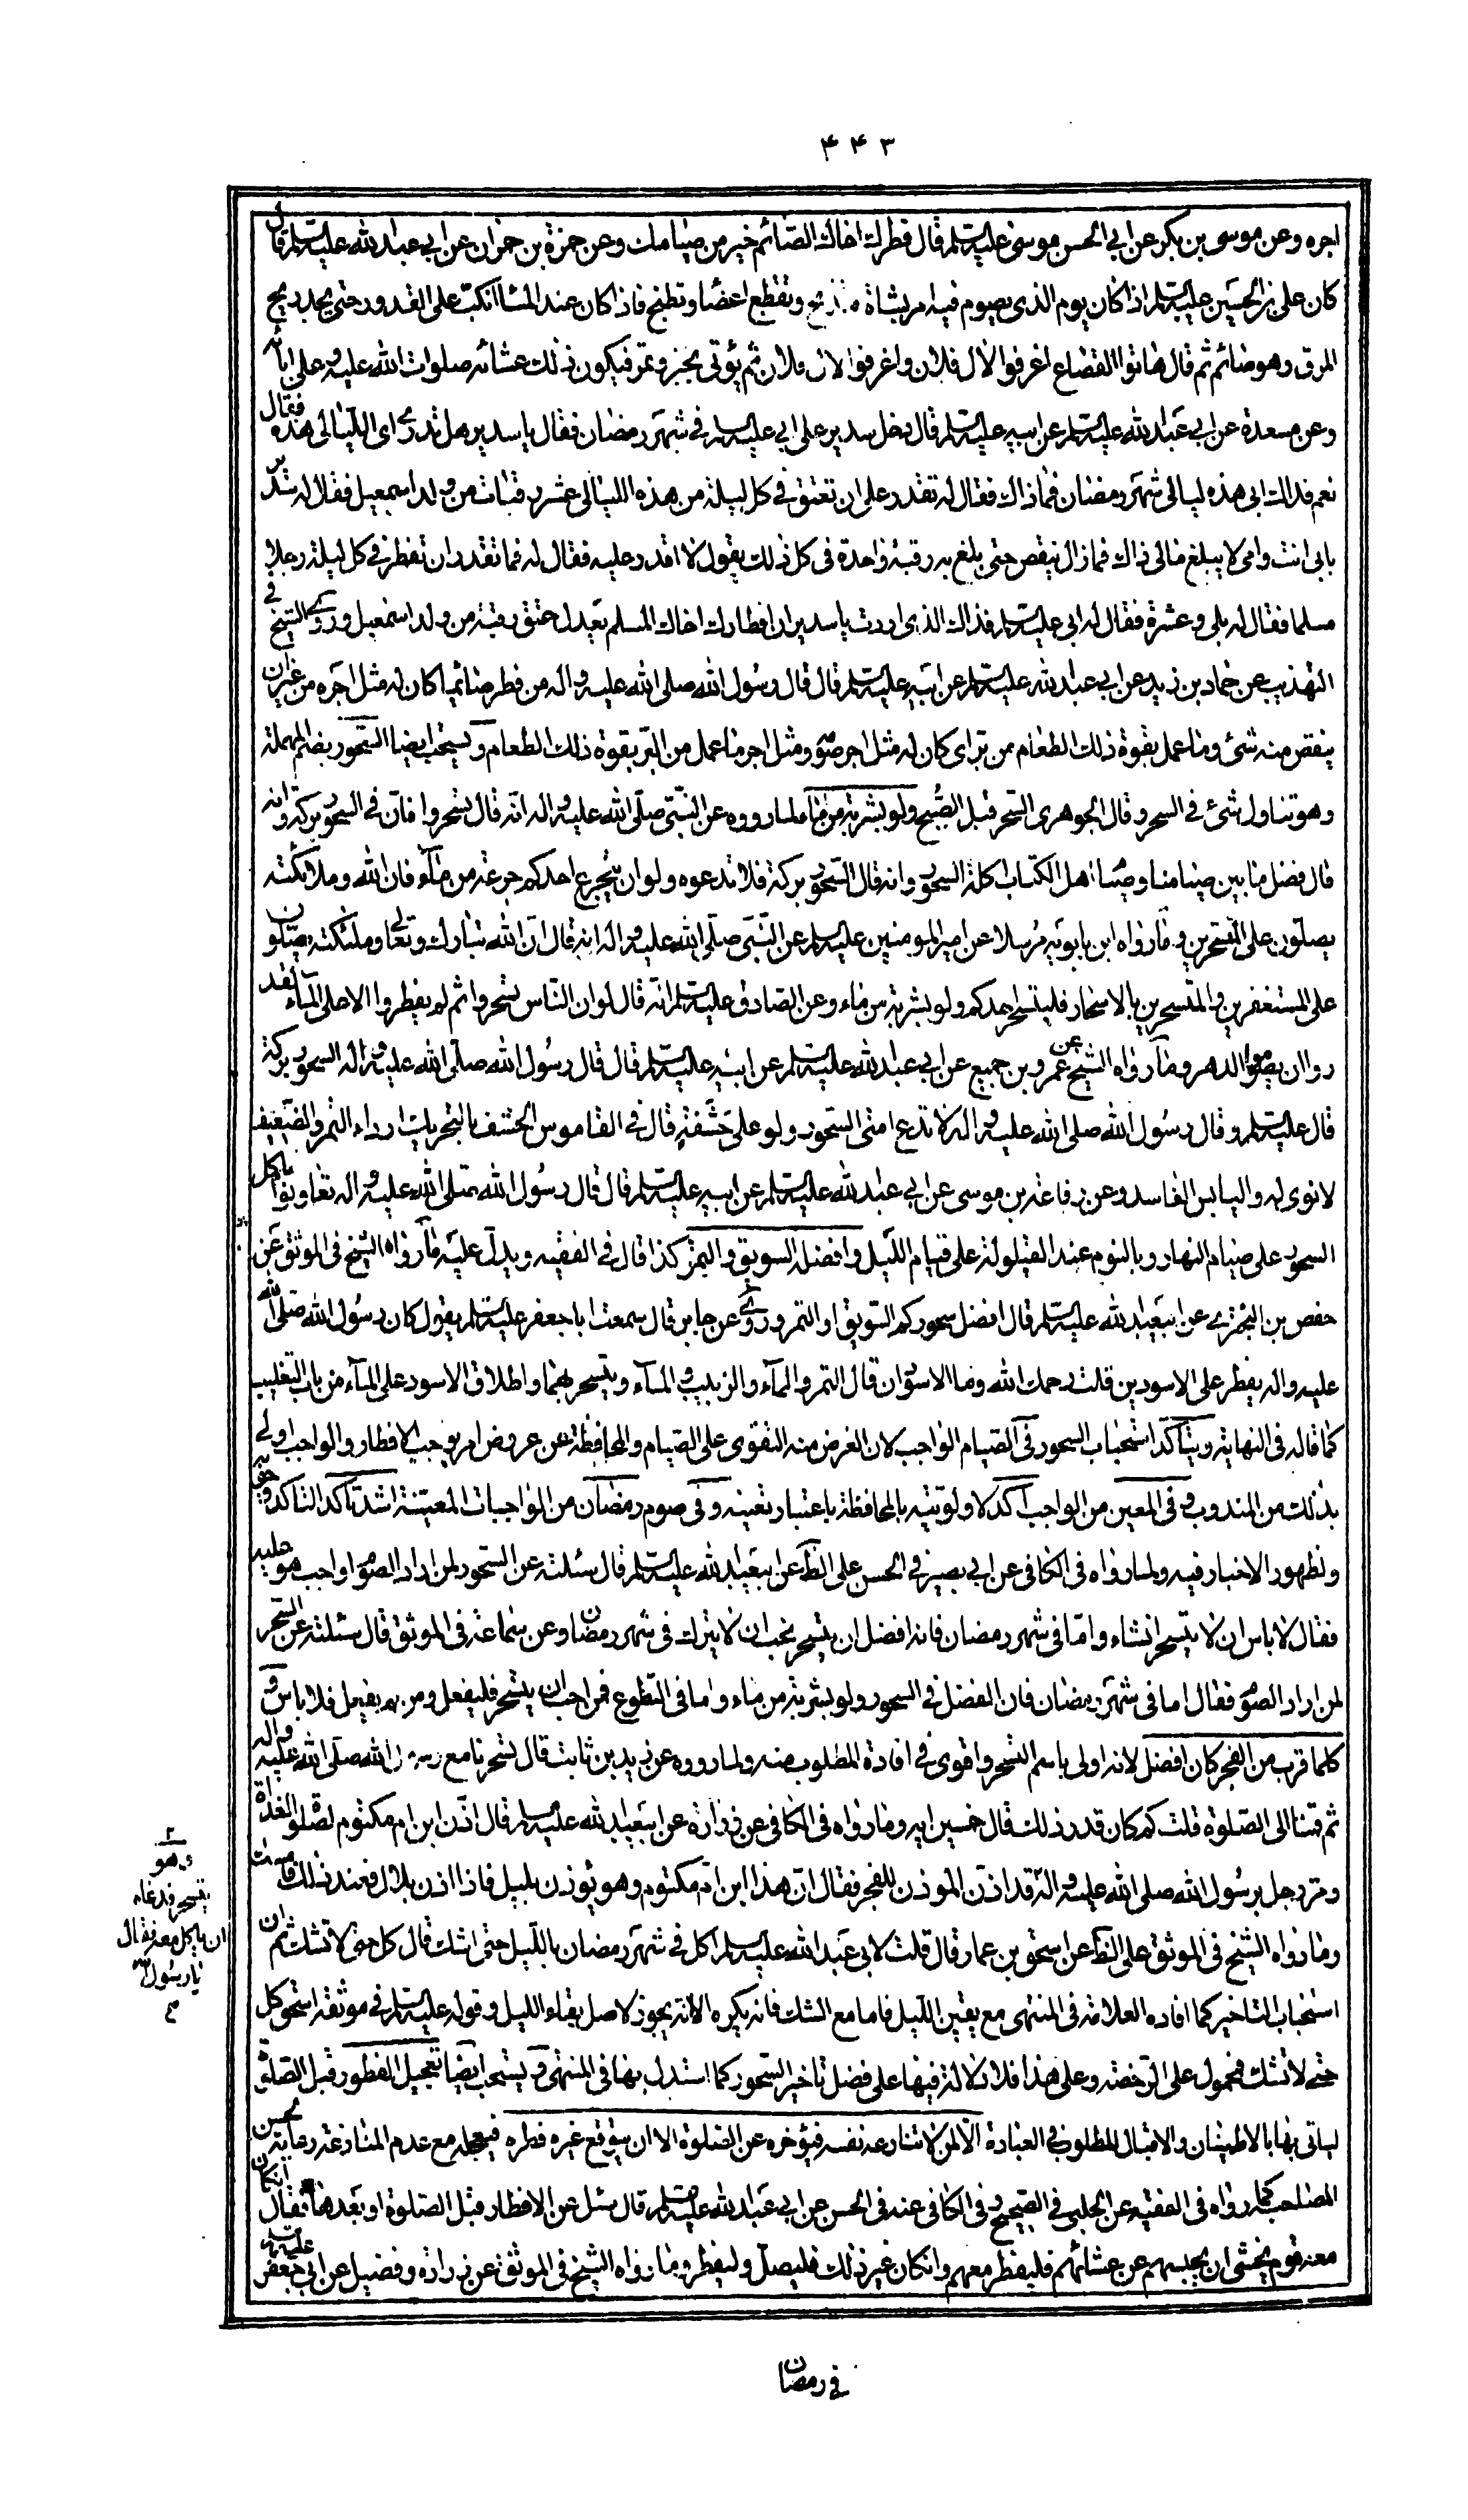 ۴۴۳
اجره وعن موسى بن بكر عن ابي الحسن موسى عليه السلم قال فطرك اخاك الصّائم خير من صيامك وعن حمزة بن حمران عن ابي عبد الله عليه السلم قال
كان على بن الحسين عليه السلم اذا كان يوم الذى يصوم فيه امر بشاة فتذبح وتقطع اعضا وتطبخ فاذا كان عند المسا انكبّ على القدور حتى يجد ريح
المرق وهو صائم ثم قال هاتوا القصاع اغرفوا لال فلان واغرفوا لال فلان ثم يؤتى بخبز وتمر فيكون ذلك عشائه صلوات الله عليه وعلى ابائه
وعن مسعدة عن ابي عبد الله عليه السلم عن ابيه عليه السلم قال دخل سدير على ابي عليه السلم في شهر رمضان فقال يا سدير هل تدرى اى الليالى هذه فقال
نعم فداك ابى هذه ليالى شهر رمضان فما ذاك فقال له تقدر على ان تعتق في كل ليلة من هذه الليالى عشر رقبات من ولد اسمعيل فقال له سدير
بابى انت وامى لا يبلغ مالى ذاك فما زال ينقص حتى بلغ به رقبة واحدة فى كل ذلك يقول لا اقدر عليه فقال له فما تقدر ان تفطر في كل ليلة رجلا
مسلما فقال له بلى وعشرة فقال له ابي عليه السلم فذاك الذى اردت يا سدير ان افطارك اخاك المسلم يعدل عتق رقبة من ولد اسمعيل وروى الشيخ في
التهذيب عن حماد بن زيد عن ابي عبد الله عليه السلم عن ابيه عليه السلم قال قال رسول الله صلى الله عليه واله من فطر صائما كان له مثل اجره من غير ان
ينقص منه شئ وما عمل بقوة ذلك الطعام من برّ اى كان له مثل اجر صومه ومثل اجر ما عمل من البرّ بقوة ذلك الطعام ويستحب ايضا السّحور بضم المهملة
وهو تناول شئ في السحر وقال الجوهرى السّحر قبل الصّبح ولو بشربة من ماء لما رووه عن النّبيّ صلّى الله عليه واله انّه قال تسحّروا فانّ في السحور بركة وانه
قال فصل ما بين صيامنا وصيام اهل الكتاب اكلة السحور وانه قال السّحور بركة فلا تدعوه ولو ان يتجرع احدكم جرعة من ماء فان الله وملائكته
يصلّون على المتسحرين وما رواه ابن بابويه مرسلا عن امير المومنين عليه السلم عن النّبي صلّى الله عليه واله انه قال انّ الله تبارك وتعالى وملئكته يصلّون
على المستغفرين والمتسحرين بالاسحار فليتسحر احدكم ولو بشربة من ماء وعن الصادق عليه السلم انّه قال لو ان النّاس تسحروا ثم لم يفطروا الا على المآء لقد
روا ان يصوموا الدهر وما رواه الشيخ عن عمرو بن جميع عن ابي عبد الله عليه السلم عن ابيه عليه السلم قال قال رسول الله صلّى الله عليه واله السحور بركة
قال عليه السلم وقال رسول الله صلى الله عليه واله لا تدع امتى السحور ولو على حَشَفَةٍ قال في القاموس الحشف بالتحريك اردأ التمر والضّعيف
لا نوى له واليابس الفاسد وعن رفاعة بن موسى عن ابي عبد الله عليه السلم عن ابيه عليه السلم قال قال رسول الله صلى الله عليه واله تعاونوا باكل
السحور على صيام النهار وبالنوم عند القيلولة على قيام اللّيل وافضله السويق والتمر كذا قال في الفقيه ويدل عليه ما رواه الشيخ فى الموثق عن
حفص بن البخترى عن ابيعبد الله عليه السلم قال افضل سحوركم السّويق او التمر وروى عن جابر قال سمعت ابا جعفر عليه السلم يقول كان رسول الله صلى الله
عليه واله يفطر على الاسودين قلت رحمك الله وما الاسودان قال التمر والمآء والزبيب والمآء ويتسحر بهما واطلاق الاسود على المآء من باب التغليب
كما قاله في النهاية ويتاكّد استحباب السحور فى الصيام الواجب لان الغرض منه التقوى على الصيام والمحافظة عن عروض امر يوجب الافطار والواجب اولى
بذلك من المندوب وفى المعين من الواجب آكد لاولويته بالمحافظة باعتبار تعينه وفى صوم رمضان من الواجبات المعيّنة اشد تاكد التاكد حقه
ولظهور الاخبار فيه ولما رواه فى الكافى عن ابي بصير في الحسن على الظّ عن ابيعبد الله عليه السلم قال سئلته عن السحور لمن اراد الصوم اواجب هو عليه
فقال لا باس ان لا يتسحر ان شاء وامّا في شهر رمضان فانه افضل ان يتسحر نحب ان لا يترك في شهر رمضان وعن سماعة في الموثق قال سئلته عن السّحور
لمن اراد الصوم فقال اما في شهر رمضان فان الفضل في السحور ولو بشربة من ماء واما فى التطوع فمن احب ان يتسحر فليفعل ومن لم يفعل فلا باس و
كلما قرب من الفجر كان افضل لانه اولى باسم التسحر واقوى في افادة المطلوب منه ولما رووه عن زيد بن ثابت قال تسحرنا مع رسول الله صلّى الله عليه واله
ثم قمنا الى الصّلوة قلت كم كان قدر ذلك قال خمسين اية وما رواه فى الكافى عن زرارة عن ابيعبد الله عليه السلم قال اذّن ابن ام مكتوم لصلوة الغداة
ومرّ رجل برسول الله صلى الله عليه واله قد اذن الموذن للفجر فقال ان هذا ابن ام مكتوم وهو يؤذن بليل فاذا اذن بلال فعند ذلك فامسك
وما رواه الشيخ فى الموثق على الظّ عن اسحق بن عمار قال قلت لابي عبد الله عليه السلم اكل في شهر رمضان بالليل حتى اشك قال كل حتى لا تشك ثم ان
استحباب التاخير كما افاده العلامة فى المنتهى مع يقين اللّيل فاما مع الشك فانه يكره الا انه يجوز لاصل بقاء الليل وقوله عليه السلم في موثقة اسحق كل
حتى لا تشك محمول على الرّخصة وعلى هذا فلا دلالة فيها على فضل تاخير السّحور كما استدل بها فى المنتهى ويستحب ايضا تعجيل الفطور قبل الصّلوة
لياتى بها بالاطمينان والاقبال المطلوب في العبادة الا لمن لا تنازعه نفسه فيؤخره عن الصّلوة الا ان يتوقع غيره فطره فيعجله مع عدم المنازعة رعاية لحسن
المصاحبة كما رواه فى الفقيه عن الحلبى في الصّحيح وفى الكافى عنه فى الحسن عن ابي عبد الله عليه السلم قال سئل عن الافطار قبل الصّلوة او بعدها فقال ان كان
معه قوم يخشى ان يحبسهم عن عشائهم فليفطر معهم وان كان غير ذلك فليصلّ وليفطر وما رواه الشيخ في الموثق عن زرارة وفضيل عن ابي جعفر عليه السلم
وهو
يتسحر فدعاه
ان ياكل معه فقال
يا رسول الله
في رمضان